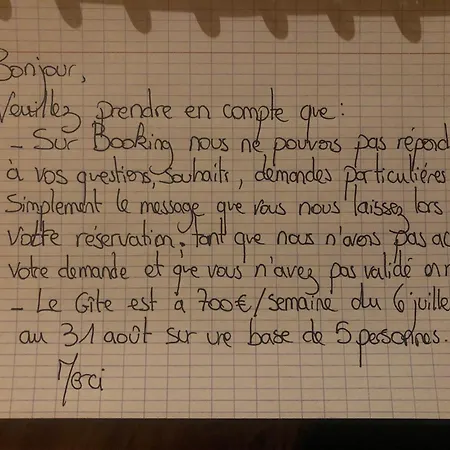 Bonjour,
Veuillez prendre en compte que :
- Sur Booking nous ne pouvons pas répond
à vos questions, souhaits, demandes particulières
Simplement le message que vous nous laissez lors
votre réservation, tant que nous n'avons pas ac
votre demande et que vous n'avez pas validé on n
- Le Gîte est à 700€/semaine du 6 juille
au 31 août sur une base de 5 personnes.
Merci